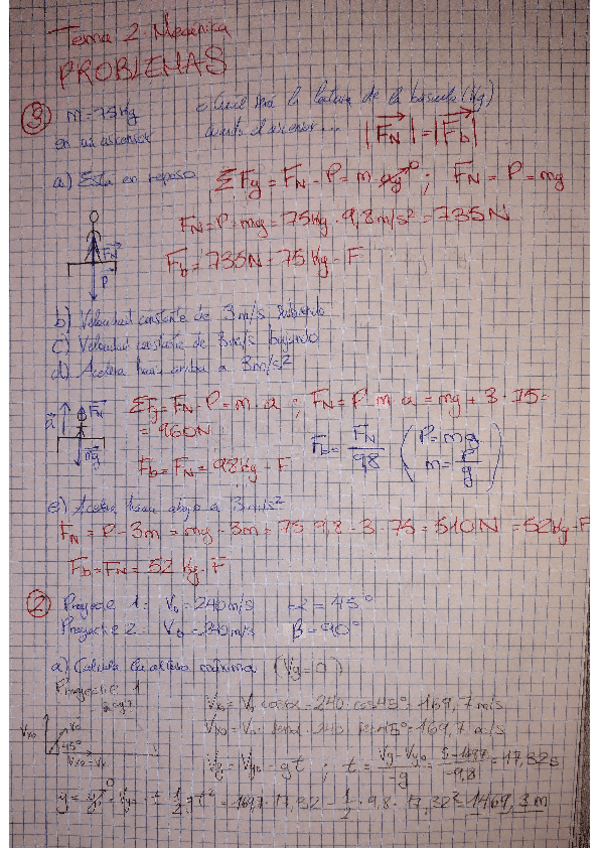 Tema 2. Mecánica
PROBLEMAS
③ m = 75 kg ¿Cuál será la lectura de la báscula (kg)
en un ascensor cuando el ascensor... |F_N| = |F_b|
a) Está en reposo ΣFy = F_N - P = m·ay⁰ ; F_N = P = mg
F_N = P = mg = 75kg · 9,8 m/s² = 735N
F_b = 735N = 75 kg - F
F_N
P
b) Velocidad constante de 3m/s subiendo
c) Velocidad constante de 3m/s bajando
d) Acelera hacia arriba a 3m/s²
a F_N ΣFy = F_N - P = m·a ; F_N = P m a = mg + 3 · 75 =
= 960N
mg F_b = F_N/9,8 (P = mg m = P/g)
F_b = F_N = 98 kg - F
e) Acelera hacia abajo a 3m/s²
F_N = P - 3m = mg - 3m = 75·9,8 - 3·75 = 510N = 52kg-F
F_b = F_N = 52 kg·F
② Proyectil 1: V₀ = 240 m/s = 45°
Proyectil 2: V₀ = 240 m/s β = 90°
a) Calcula la altura máxima (Vy = 0)
Proyectil 1
Vx₀ = V₀ cosα = 240 · cos45° = 169,7 m/s
= 240 · sen45° = 169,7 m/s
45°
= Vy₀ - gt ; t = (Vy - Vy₀)/-g = /-9,8 = 17,32 s
y = y₀⁰ + Vy₀ · t - ½gt² = 169,7 · 17,32 - ½ · 9,8 · 17,32² = 1469,3 m